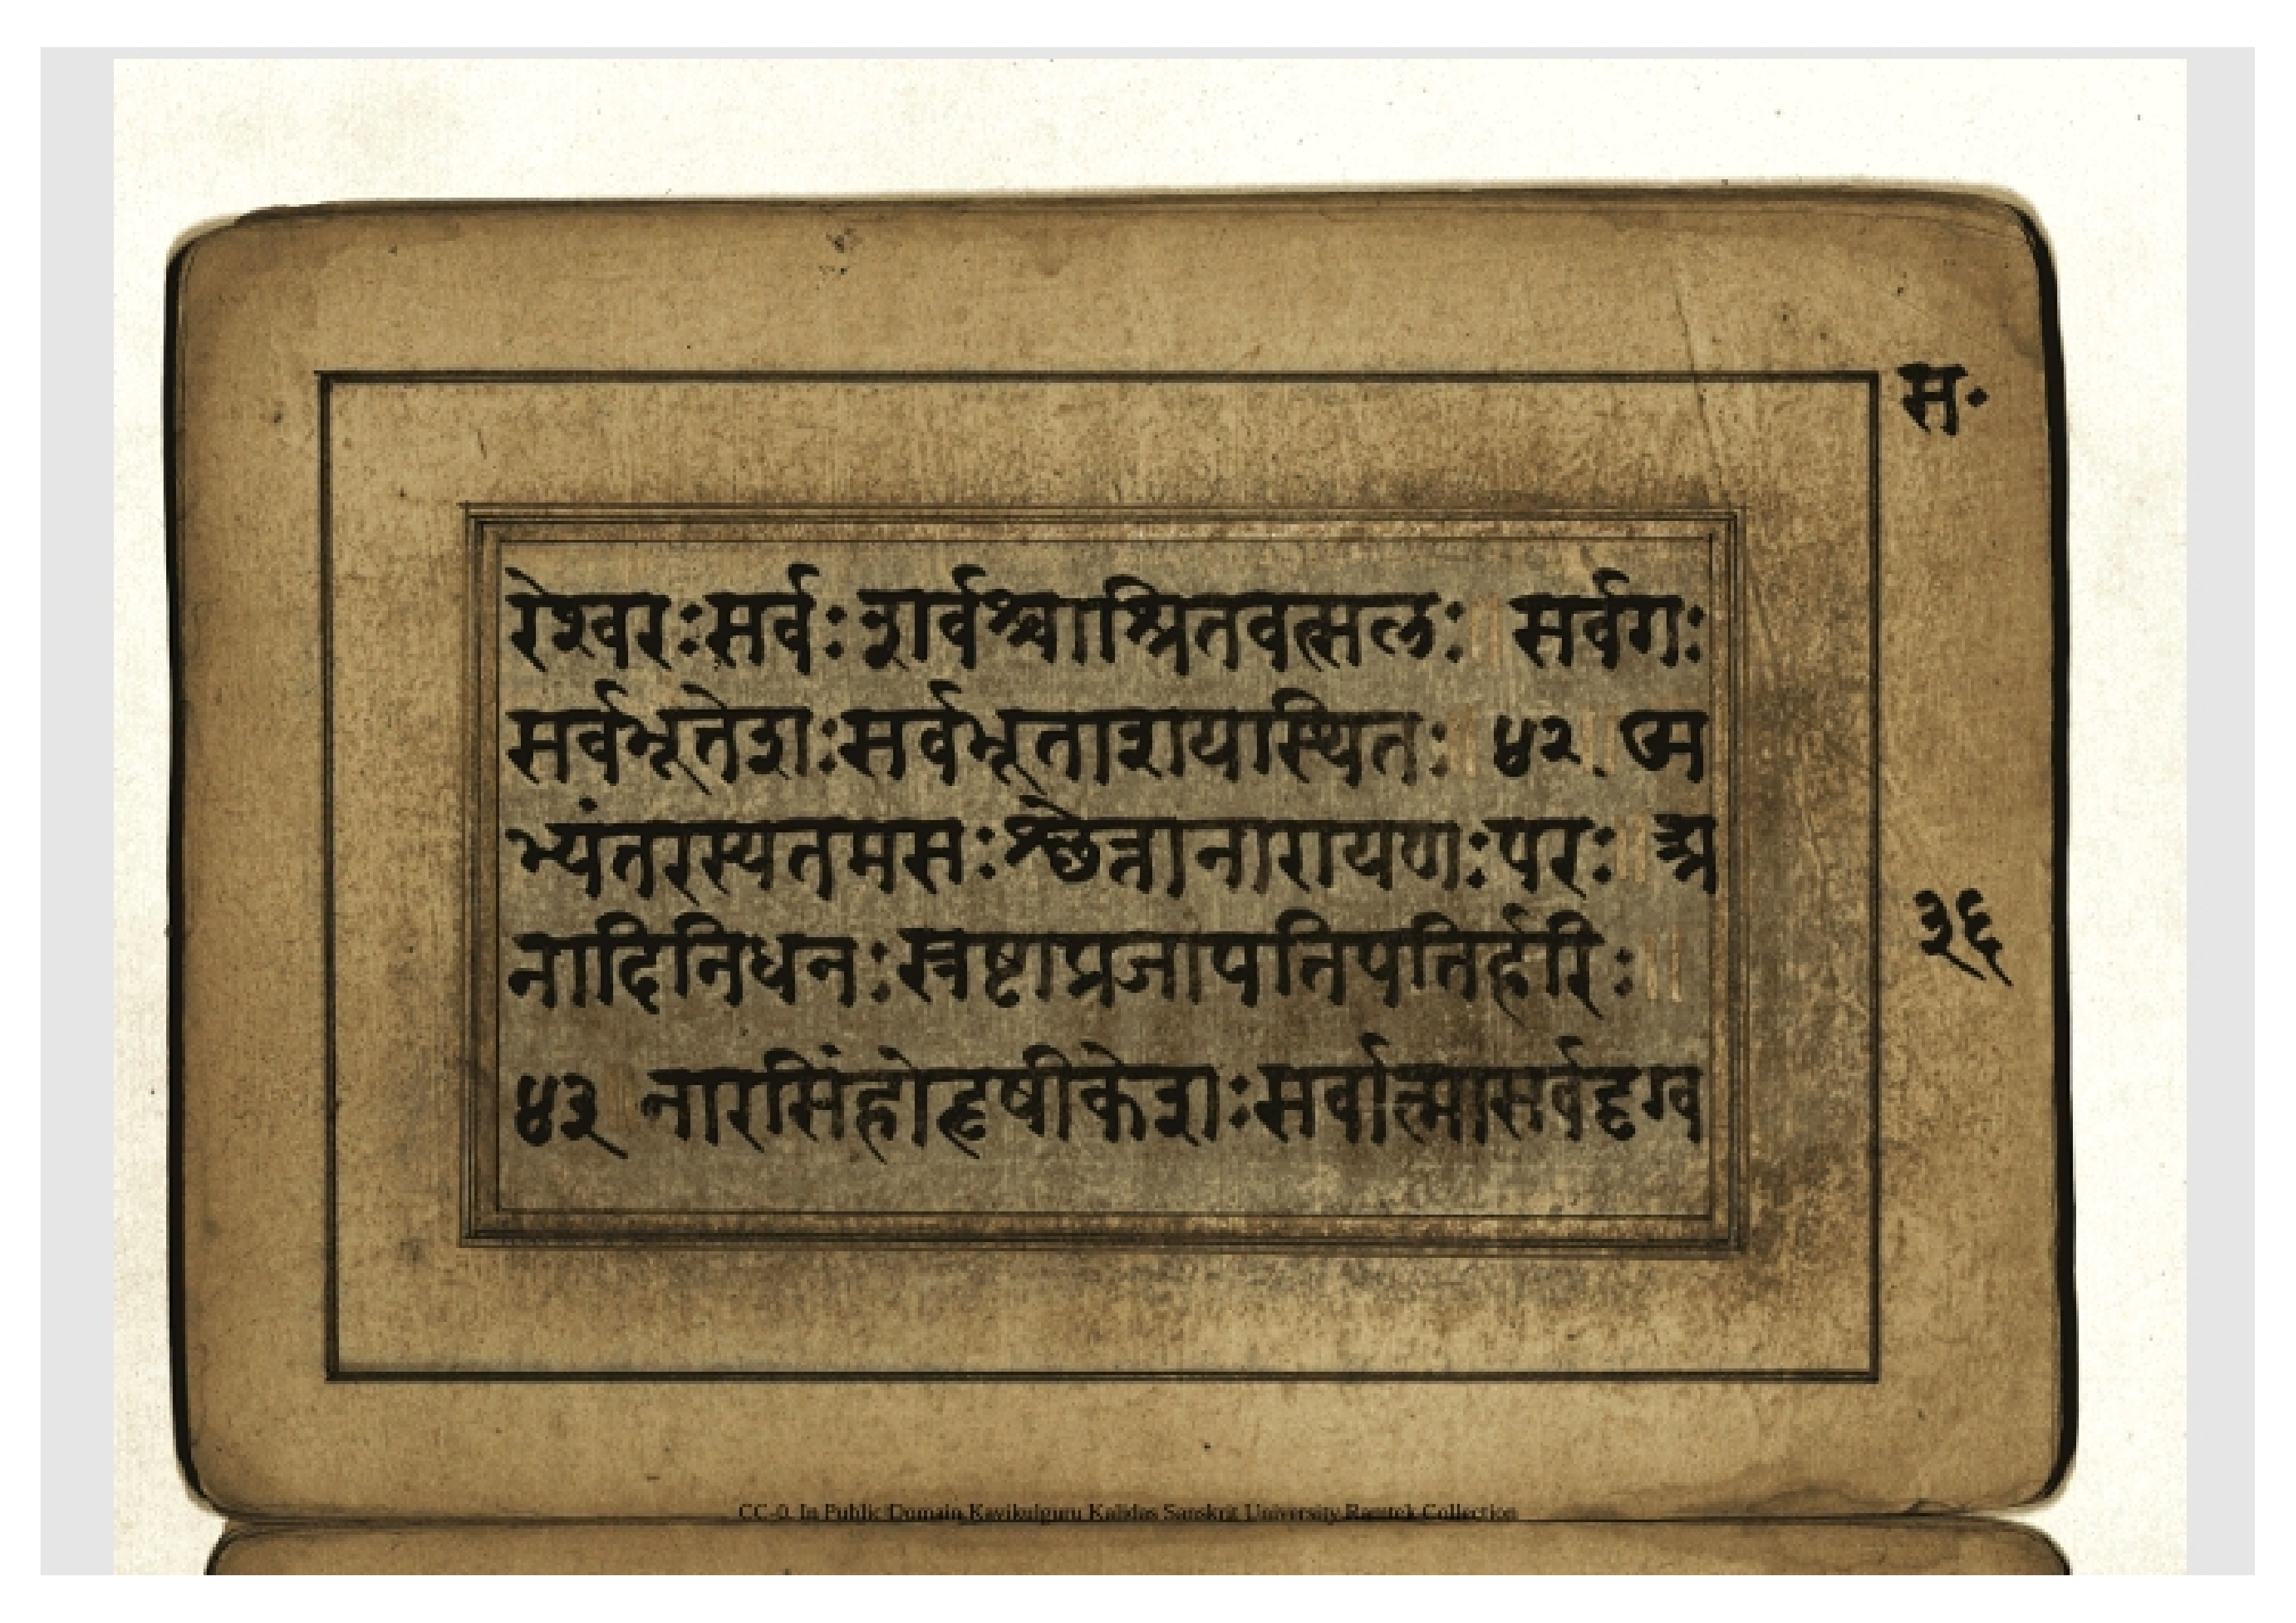 स॰
रेश्वरःसर्वःशर्वश्चाश्रितवत्सलः॥ सर्वगः
सर्वभूतेशःसर्वभूताशयास्थितः॥ ४२॥ अ
भ्यंतरस्यतमसःश्छेत्तानारायणःपरः॥ अ
नादिनिधनःस्रष्टाप्रजापतिपतिर्हरिः॥
३६
४३॥ नारसिंहोहृषीकेशःसर्वात्मासर्वदृग्व
CC-0. In Public Domain. Kavikulguru Kalidas Sanskrit University Ramtek Collection